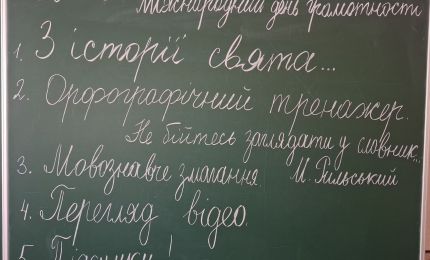 Міжнародний день грамотності
1. З історії свята...
2. Орфографічний тренажер.
Не бійтесь заглядати у словник...
3. Мовознавче змагання М. Рильський
4. Перегляд відео.
5. Підсумки!